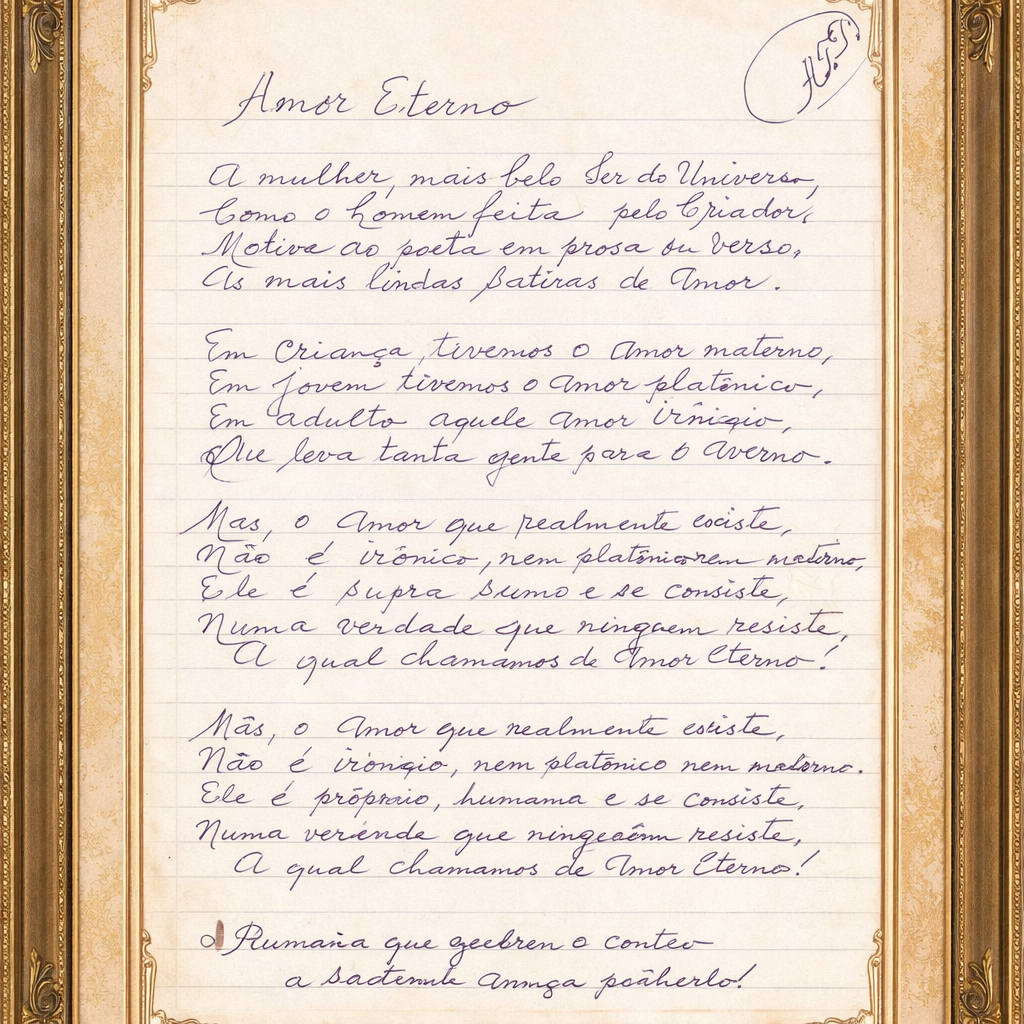 Amor Eterno
A mulher, mais belo Ser do Universo,
Como o homem feita pelo Criador,
Motiva ao poeta em prosa ou verso,
As mais lindas Satiras de Amor.
Em criança, tivemos o Amor materno,
Em jovem tivemos o Amor platônico,
Em adulto aquele Amor
Que leva tanta gente para o Averno.
Mas, o Amor que realmente existe,
Não é irônico, nem materno,
Ele é supra sumo e se consiste,
Numa verdade que ninguem resiste,
A qual chamamos de Amor Eterno!
Mãs, o Amor que realmente existe,
Não é nem platônico nem materno.
Ele é humama e se consiste,
Numa que resiste,
A qual chamamos de Amor Eterno!
que o
a